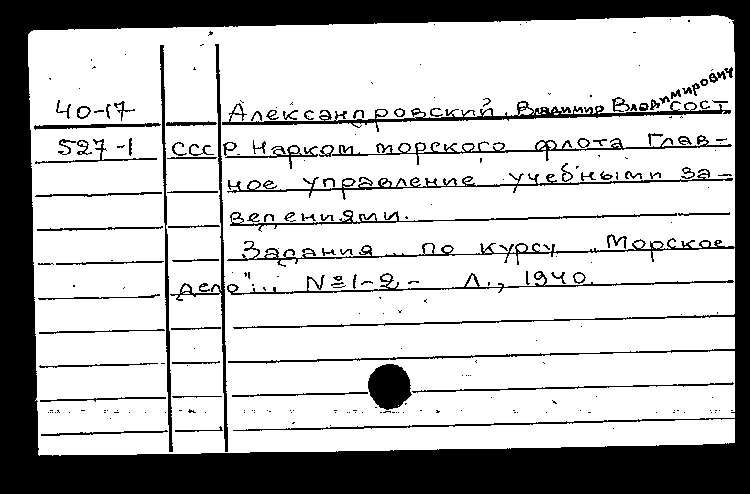 40-17 Александровский, Владимир Владимирович сост
527-1 СССР. Нарком. морского флота Глав-
ное управление учебными за-
ведениями.
Задания .. по курсу „Морское
дело"... №1-2,- Л., 1940.